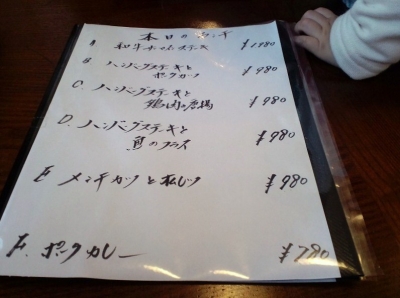 本日のランチ
A 和牛サーロインステーキ ¥1980
B ハンバーグステーキと
ポークカツ ¥980
C. ハンバーグステーキと
鶏肉の唐揚 ¥980
D. ハンバーグステーキと
魚のフライ ¥980
E メンチカツと
¥980
F. ポークカレー ¥780